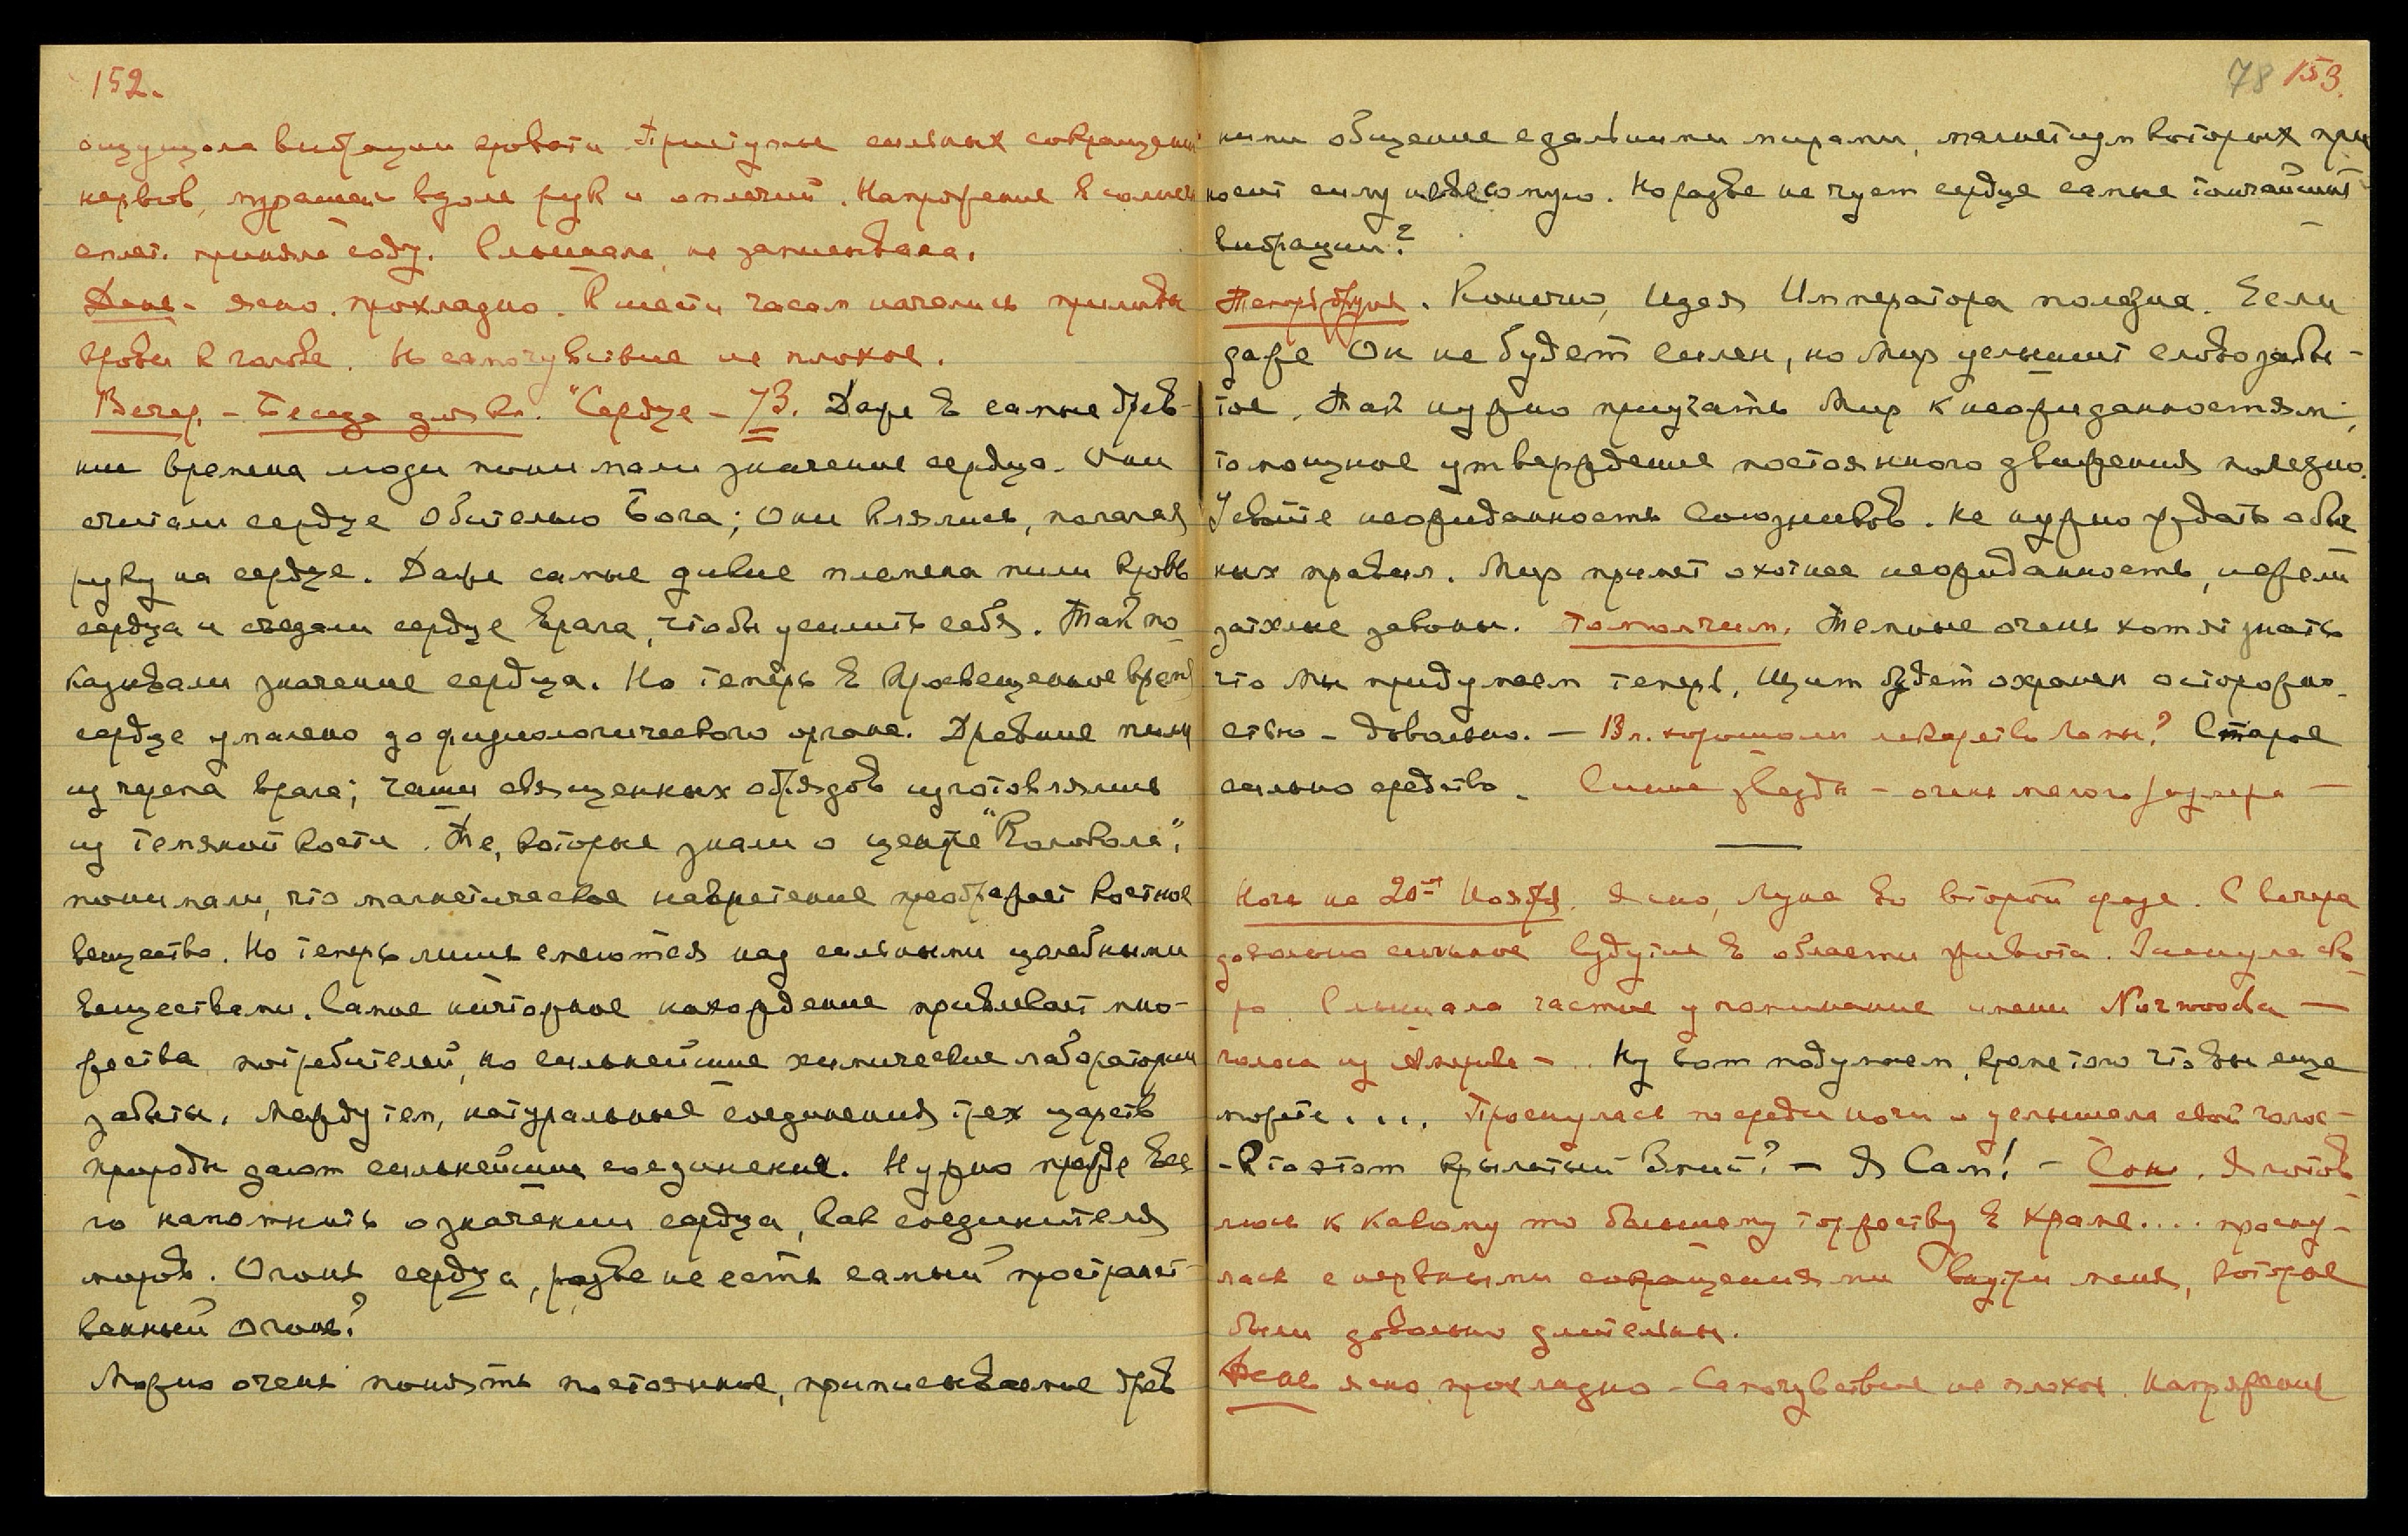 152.
ощущала вибрации кровати Приступы сильных сокращений
нервов, мурашек вдоль рук и оплечий. Напряжение в солнеч
сплет. приняла соду. Слышала, не записывала.
День - ясно. прохладно. К шести часам начались приливы
крови к голове. Но самочувствие не плохое.
Вечер. - Беседа для кн. "Сердце - 73. Даже в самые древ-
ние времена люди понимали значение сердца. Они
считали сердце Обителью Бога; Они клялись, полагая
руку на сердце. Даже самые дикие племена пили кровь
сердца и съедали сердце врага, чтобы усилить себя. Так по-
казывали значение сердца. Но теперь в просвещенное время
сердце умалено до физиологического органа. Древние пили
из черепа врага; чаши священных обрядов изготовлялись
из темянной кости. Те, которые знали о центре "Колокола",
понимали, что магнетическое навретение преображает костное
вещество. Но теперь лишь смеются над сильными целебными
веществами. Самое ничтожное нахождение привлекает мно-
жества потребителей, но сильнейшие химические лаборатории
забыты. Между тем, натуральные соединения трех царств
природы дают сильнейшие соединения. Нужно прежде все
го напомнить о значении сердца, как соединителя
миров. Огонь сердца, разве не есть самый пространст-
венный Огонь?
Можно очень понять постоянное, приписываемое древ
78 153.
ними общение с дальними мирами, магнетизм которых при
носит силу целебную. Но разве не чует сердце самые тончайшие
вибрации?
Теперь другое. Конечно, Идея Императора полезна. Если
даже Он не будет силен, но Мир услышит слово забы-
тое. Так нужно приучать Мир к неожиданностям;
то мощное утверждение постоянного движения полезно.
Усвойте неожиданность Союзников. Не нужно ждать обыч
ных правил. Мир примет охотнее неожиданность, нежели
затхлые законы. Помолчим. Темные очень хотят знать
что Мы придумаем теперь, Щит будет охранен осторожно-
стью - довольно. - Вл. хорошо ли лекарство Ламы? Старое
сильно средство. Синие звезды - очень малого размера -
Ночь на 20ое Ноября. Ясно, Луна во второй фазе. С вечера
довольно сильное вздутие в области живота. Заснула ско-
ро. Слышала частые упоминание имени Norwooda -
голоса из Америки - Ну вот подумаем, кроме того что вы еще
можете.... Проснулась посреди ночи и услышала свой голос -
- Кто этот крылатый Змий? - Я Сам! - Сон. Я готов
люсь к какому то большому торжеству в Храме.... просну-
лась с нервными сокращениями внутри меня, которые
были довольно длительны.
День ясно прохладно - Самочувствие не плохое. Напряжение